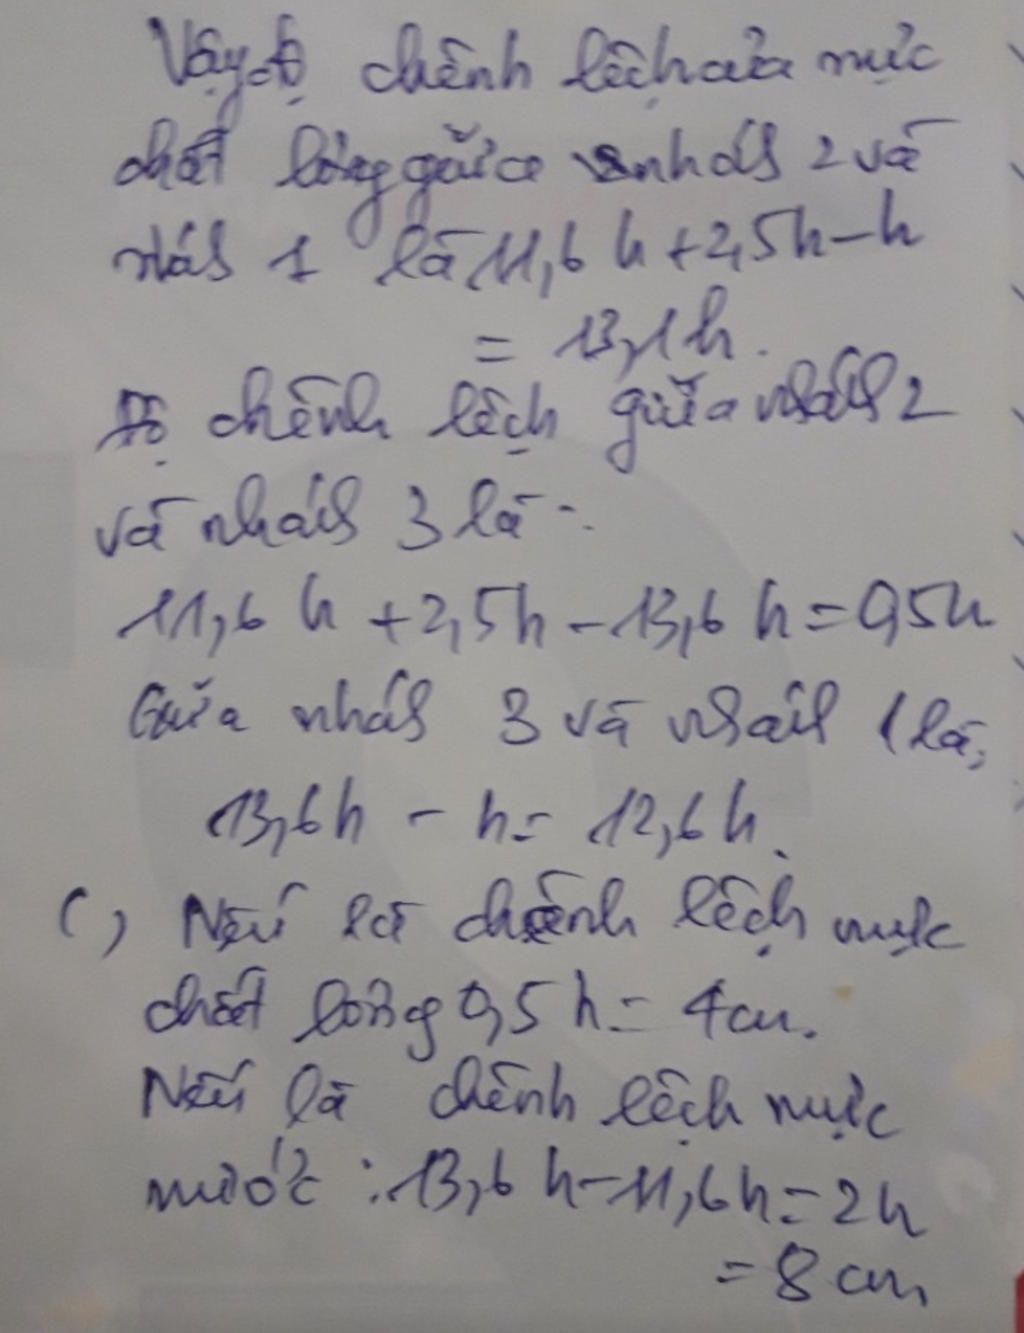 Vậy độ chênh lệch của mực
chất lỏng giữa nhánh 2 và
nhánh 1 là 11,6 h + 2,5h - h
= 13,1h.
Độ chênh lệch giữa nhánh 2
và nhánh 3 là :
11,6 h + 2,5h - 13,6 h = 0,5h
Giữa nhánh 3 và nhánh 1 là,
13,6h - h = 12,6h.
c, Nếu là chênh lệch mực
chất lỏng 0,5 h = 4cm.
Nếu là chênh lệch mực
nước : 13,6 h - 11,6h = 2h
= 8 cm,